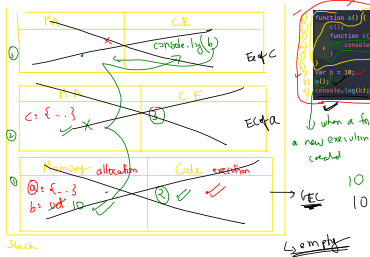 M.A
CE
console.log(b)
EC of C
3
M.A
C.E
c: {...}
EC of a
2
Memory allocation
Code execution
1
a: {...}
b: ud 10
GEC
Stack
function a() {
c();
function c(
console
var b = 10;
a();
console.log(b);
when a fn
a new execution
created
10
10
empty